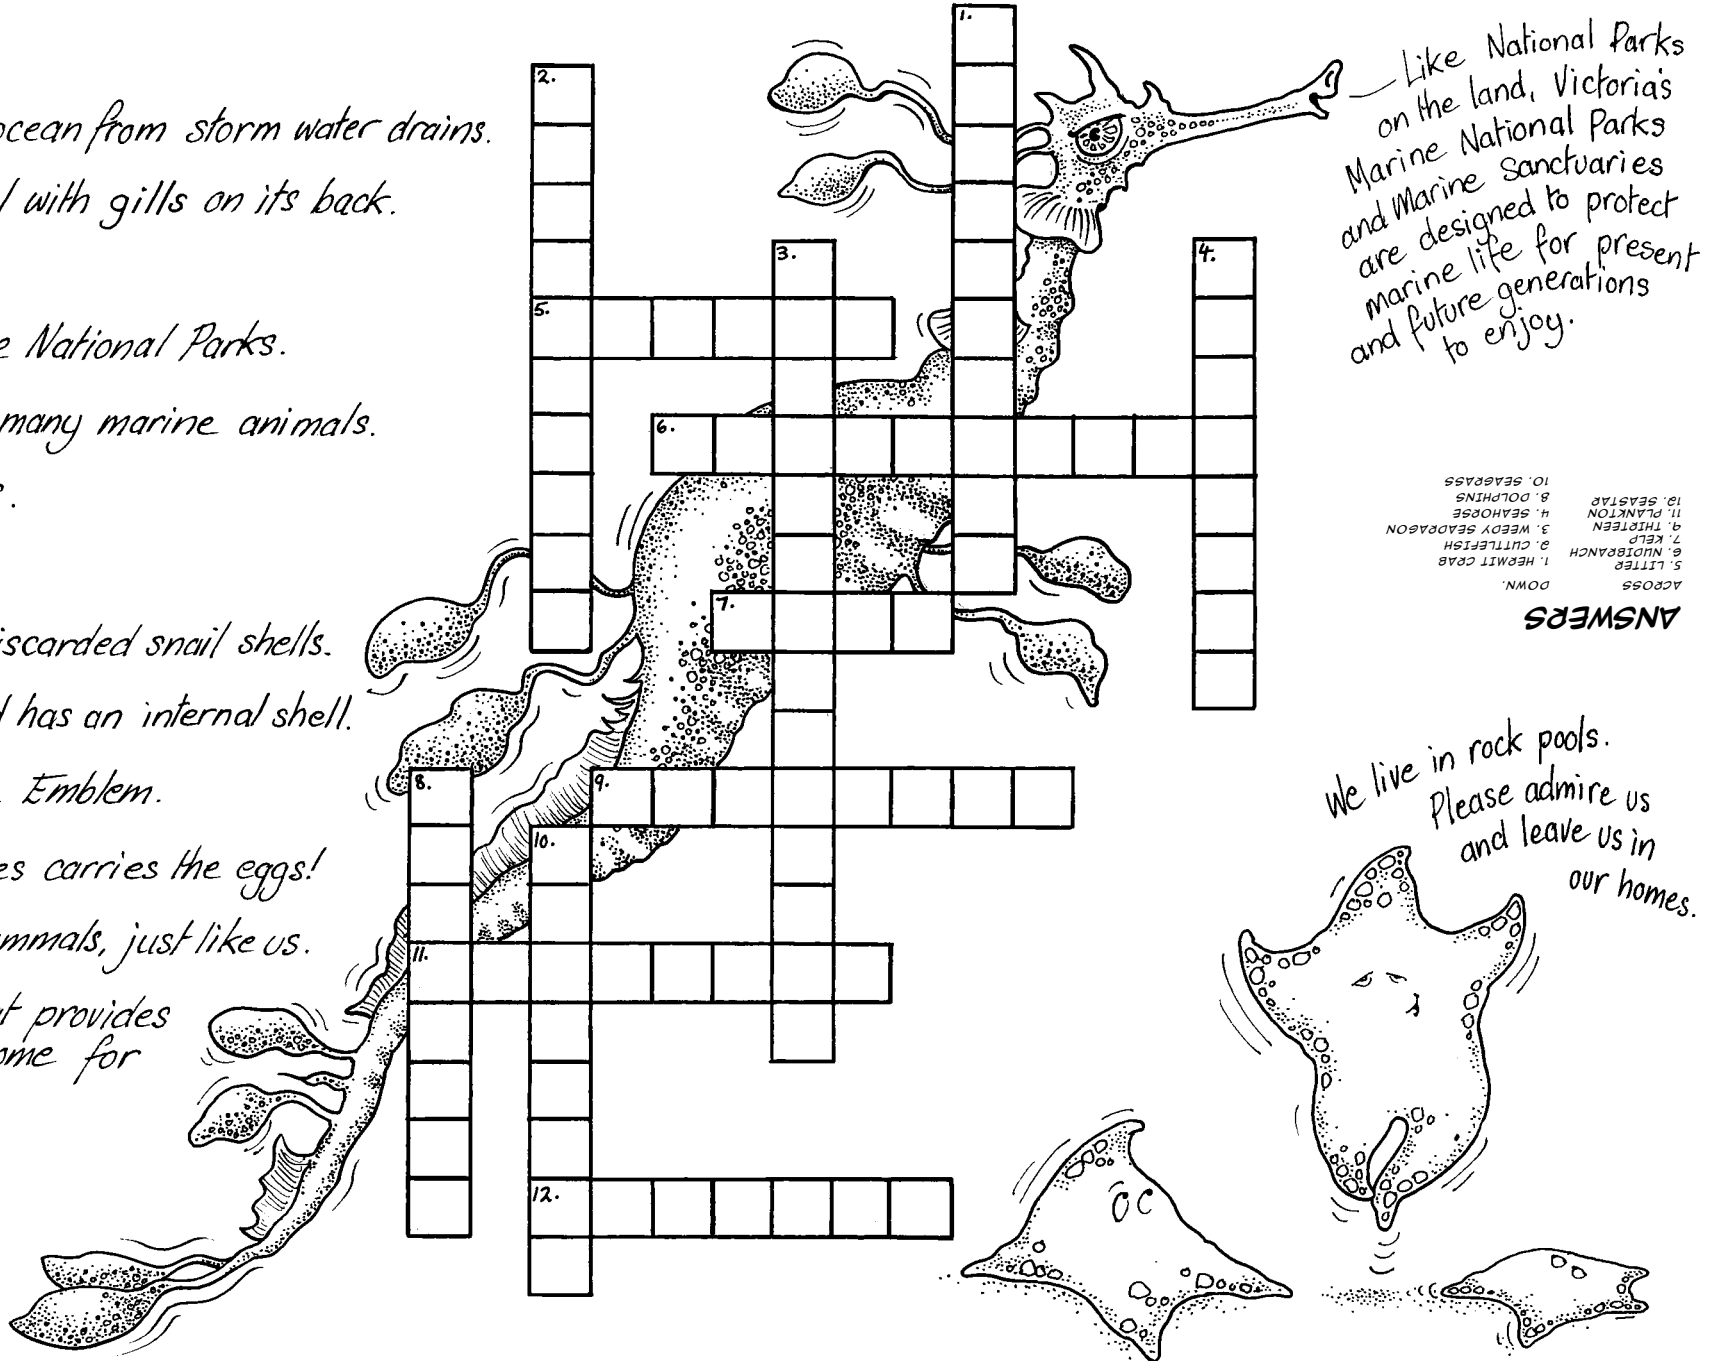 ocean from storm water drains.
with gills on its back.
National Parks.
many marine animals.
discarded snail shells.
has an internal shell.
Emblem.
carries the eggs!
mammals, just like us.
provides
home for
1.
2.
3.
4.
5.
6.
7.
8.
9.
10.
11.
12.
Like National Parks
on the land, Victoria's
Marine National Parks
and Marine Sanctuaries
are designed to protect
marine life for present
and future generations
to enjoy.
ANSWERS
ACROSS
5. LITTER
6. NUDIBRANCH
7. KELP
9. THIRTEEN
11. PLANKTON
12. SEASTAR
DOWN.
1. HERMIT CRAB
2. CUTTLEFISH
3. WEEDY SEADRAGON
4. SEAHORSE
8. DOLPHINS
10. SEAGRASS
We live in rock pools.
Please admire us
and leave us in
our homes.